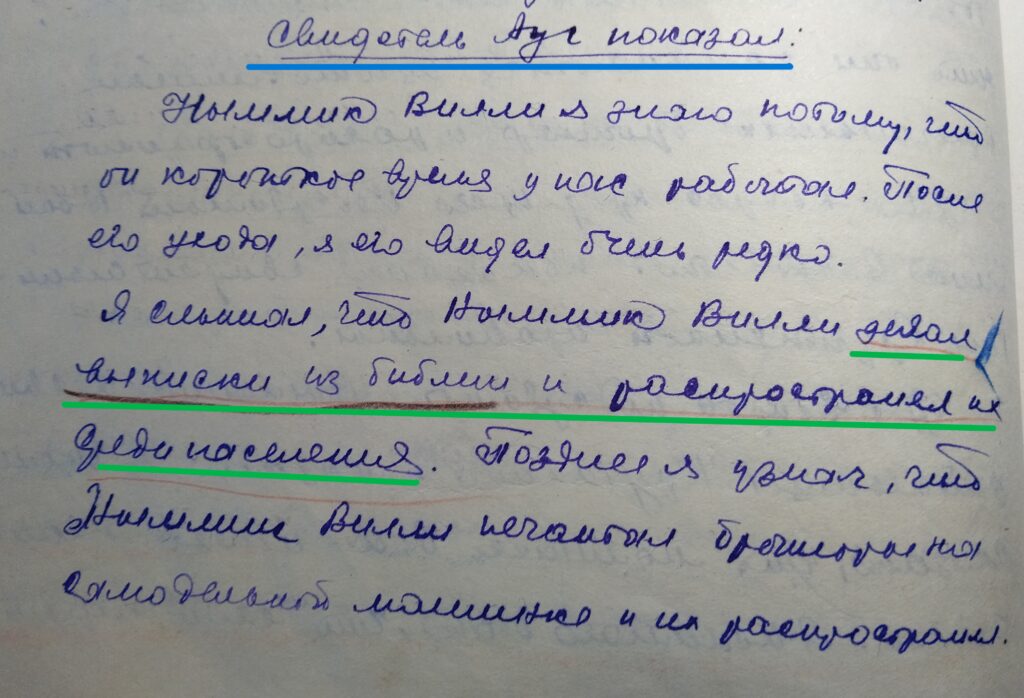 Свидетель Ауг показал:
Ныммик Вилли я знаю потому, что
он короткое время у нас работал. После
его ухода, я его видел очень редко.
Я слышал, что Ныммик Вилли делал
выписки из библии и распространял их
среди населения. Позднее я узнал, что
Ныммик Вилли печатал брошюры на
самодельной машинке и их распространял.